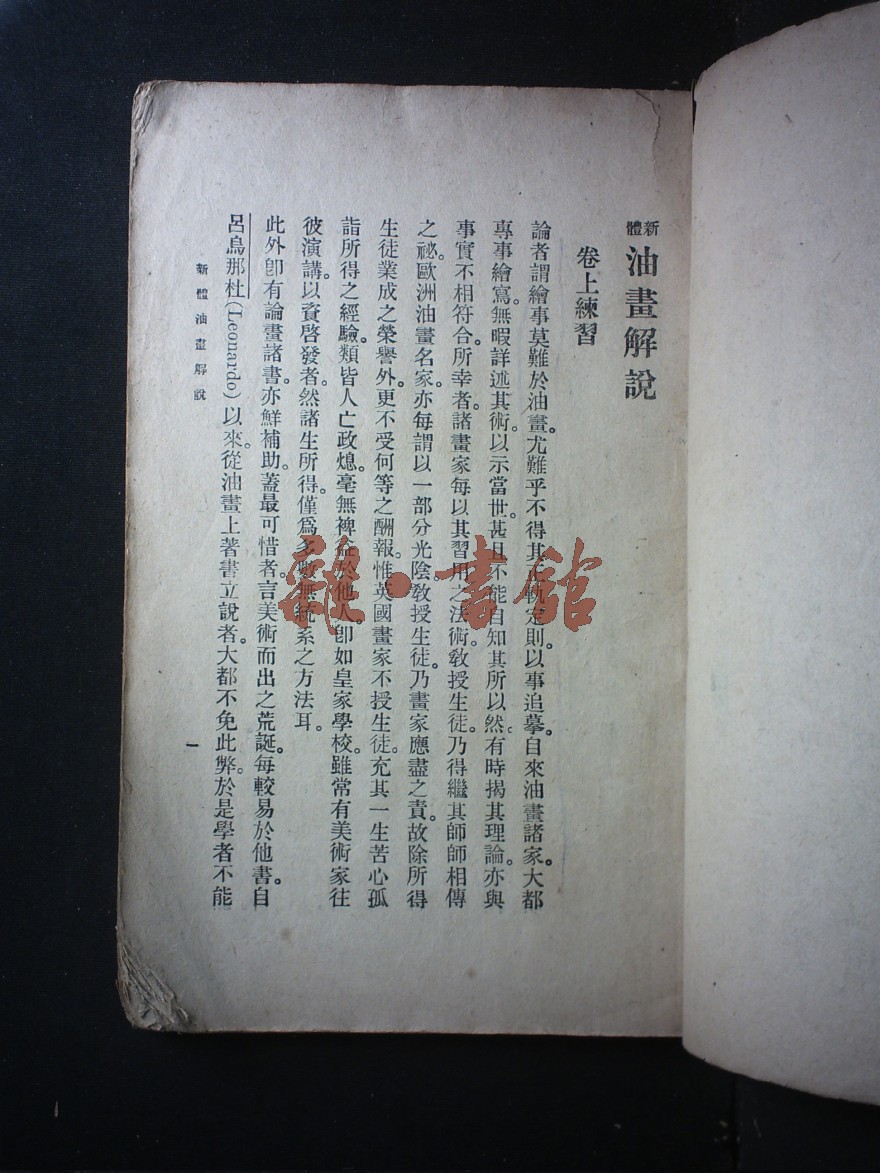 新體 油畫解說
卷上練習
論者謂繪事莫難於油畫。尤難乎不得其正軌定則。以事追摹。自來油畫諸家。大都
專事繪寫。無暇詳述其術。以示當世。甚且不能自知其所以然。有時揭其理論。亦與
事實不相符合。所幸者。諸畫家每以其習用之法術。敎授生徒。乃得繼其師師相傳
之祕。歐洲油畫名家。亦每謂以一部分光陰敎授生徒。乃畫家應盡之責。故除所得
生徒業成之榮譽外。更不受何等之酬報。惟英國畫家不授生徒。充其一生苦心孤
詣所得之經驗。類皆人亡政熄。毫無裨益於他人。卽如皇家學校。雖常有美術家往
彼演講。以資啓發者。然諸生所得。僅爲多數無統系之方法耳。
此外卽有論畫諸書。亦鮮補助。蓋最可惜者。言美術而出之荒誕。每較易於他書。自
呂鳥那杜(Leonardo)以來。從油畫上著書立說者。大都不免此弊。於是學者不能
新體油畫解說
一
雜·書館